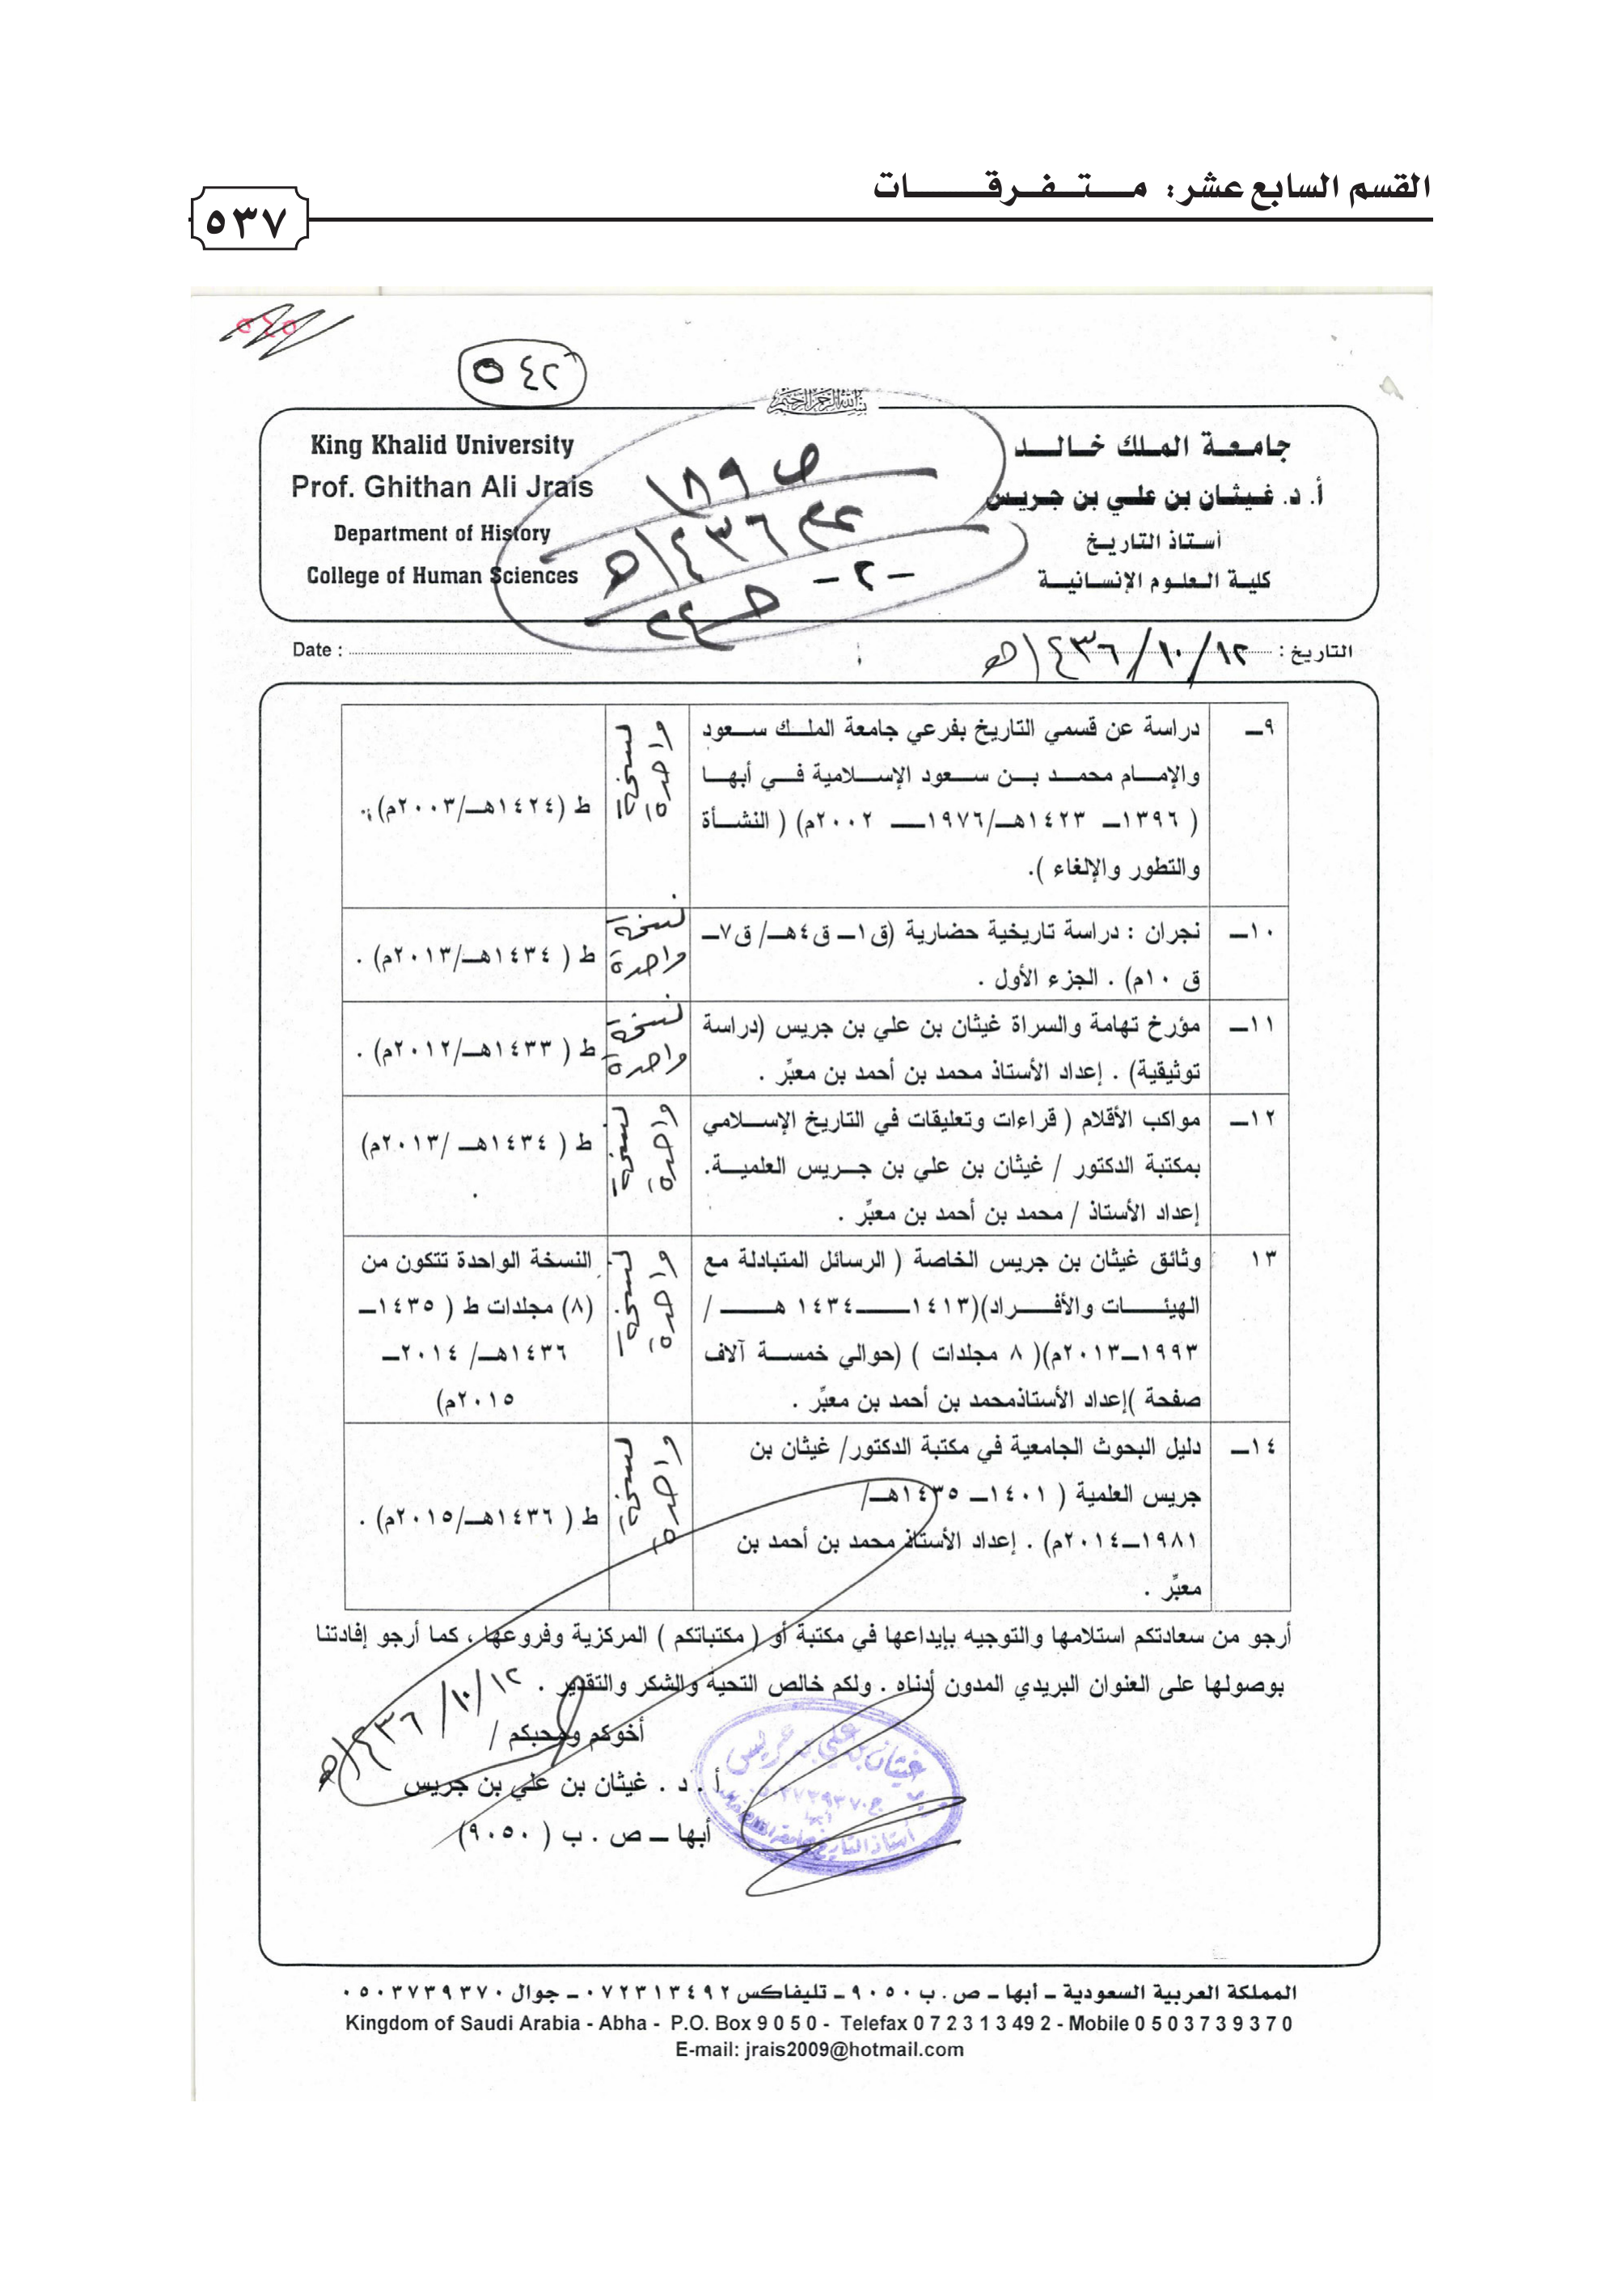 القسم السابع عشر: متفرقات
٥٣٧
٥٤٢
بسم الله الرحمن الرحيم
جامعة الملك خالد
أ. د. غيثان بن علي بن جريس
أستاذ التاريخ
كلية العلوم الإنسانية
King Khalid University
Prof. Ghithan Ali Jrais
Department of History
College of Human Sciences
ص ١٨٩
عام ١٤٣٦هـ
-٢-
التاريخ : ١٤٣٦/١٠/١٢هـ
Date :
٩ـ
دراسة عن قسمي التاريخ بفرعي جامعة الملك سعود
والإمام محمد بن سعود الإسلامية في أبها
( ١٣٩٦ـ ١٤٢٣هـ/١٩٧٦ـ ٢٠٠٢م) ( النشأة
والتطور والإلغاء ).
نسخة واحدة
ط (١٤٢٤هـ/٢٠٠٣م).
١٠ـ
نجران : دراسة تاريخية حضارية (ق١ـ ق٤هـ/ ق٧ـ
ق ١٠م) . الجزء الأول .
نسخة واحدة
ط ( ١٤٣٤هـ/٢٠١٣م) .
١١ـ
مؤرخ تهامة والسراة غيثان بن علي بن جريس (دراسة
توثيقية) . إعداد الأستاذ محمد بن أحمد بن معبِّر .
نسخة واحدة
ط ( ١٤٣٣هـ/٢٠١٢م) .
١٢ـ
مواكب الأقلام ( قراءات وتعليقات في التاريخ الإسلامي
بمكتبة الدكتور / غيثان بن علي بن جريس العلمية.
إعداد الأستاذ / محمد بن أحمد بن معبِّر .
نسخة واحدة
ط ( ١٤٣٤هـ /٢٠١٣م)
.
١٣
وثائق غيثان بن جريس الخاصة ( الرسائل المتبادلة مع
الهيئات والأفراد)(١٤١٣ـ١٤٣٤ هـ /
١٩٩٣ـ٢٠١٣م)( ٨ مجلدات ) (حوالي خمسة آلاف
صفحة )إعداد الأستاذمحمد بن أحمد بن معبِّر .
نسخة واحدة
النسخة الواحدة تتكون من
(٨) مجلدات ط ( ١٤٣٥ـ
١٤٣٦هـ/ ٢٠١٤ـ
٢٠١٥م)
١٤ـ
دليل البحوث الجامعية في مكتبة الدكتور/ غيثان بن
جريس العلمية ( ١٤٠١ـ ١٤٣٥هـ/
١٩٨١ـ٢٠١٤م) . إعداد الأستاذ محمد بن أحمد بن
معبِّر .
نسخة واحدة
ط ( ١٤٣٦هـ/٢٠١٥م) .
أرجو من سعادتكم استلامها والتوجيه بإيداعها في مكتبة أو ( مكتباتكم ) المركزية وفروعها ، كما أرجو إفادتنا
بوصولها على العنوان البريدي المدون أدناه . ولكم خالص التحية والشكر والتقدير .
١٤٣٦/١٠/١٢هـ
أخوكم ومحبكم /
أ . د . غيثان بن علي بن جريس
أبها ـ ص . ب ( ٩٠٥٠)
غيثان بن علي بن جريس
المملكة العربية السعودية ـ أبها ـ ص . ب ٩٠٥٠ ـ تليفاكس ٠٧٢٣١٣٤٩٢ ـ جوال ٠٥٠٣٧٣٩٣٧٠
Kingdom of Saudi Arabia - Abha - P.O. Box 9 0 5 0 - Telefax 0 7 2 3 1 3 49 2 - Mobile 0 5 0 3 7 3 9 3 7 0
E-mail: jrais2009@hotmail.com